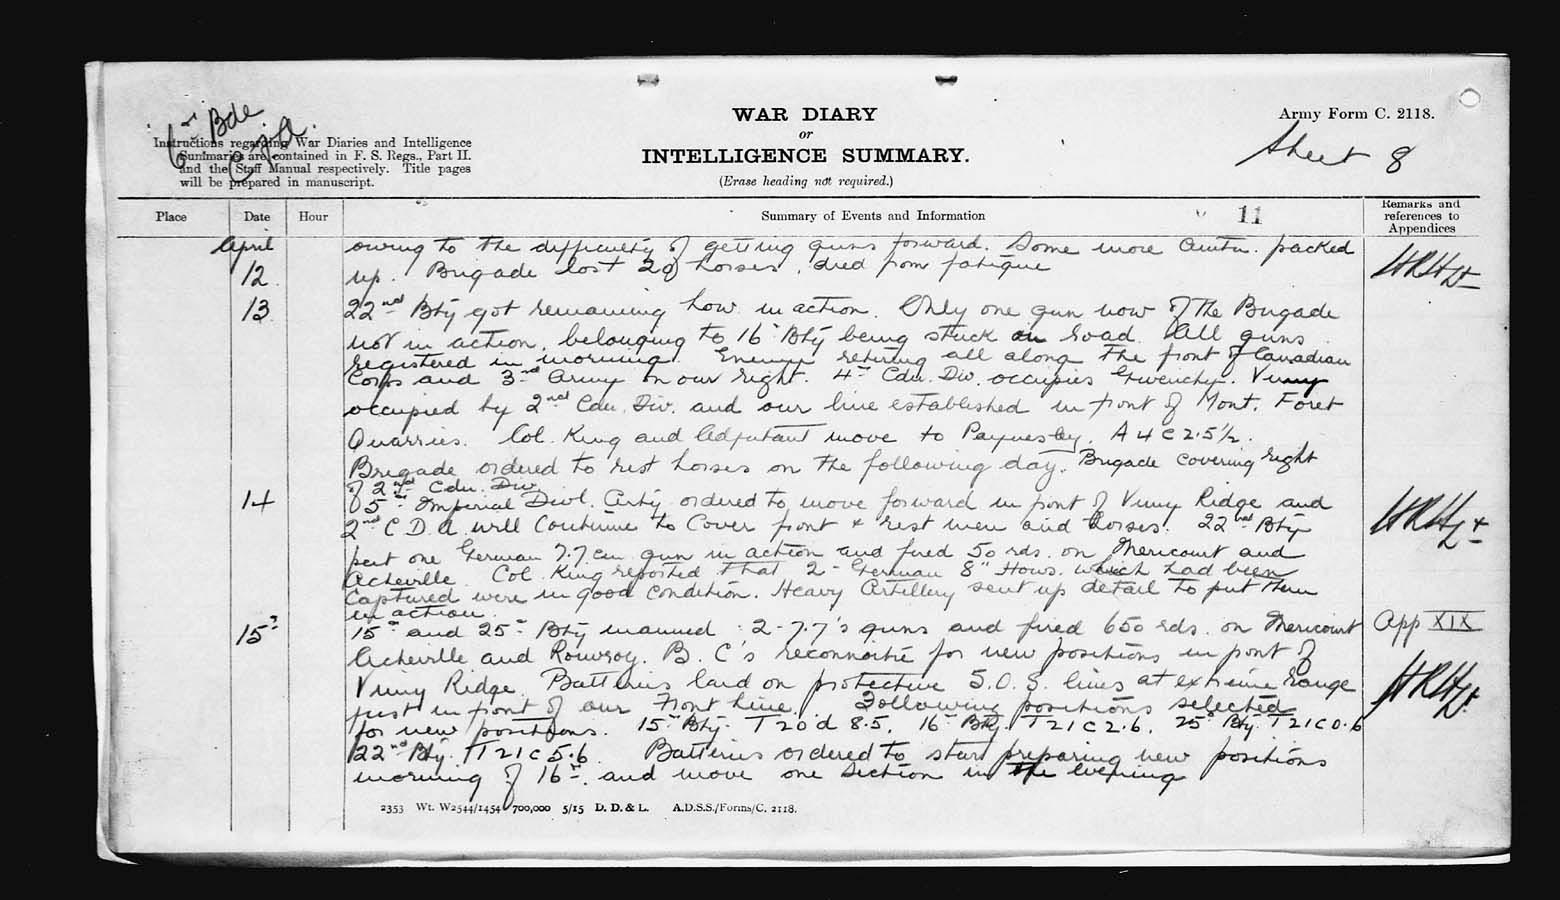 6th Bde
C.F.A.
Instructions regarding War Diaries and Intelligence
Summaries are contained in F. S. Regs., Part II.
and the Staff Manual respectively. Title pages
will be prepared in manuscript.
WAR DIARY
or
INTELLIGENCE SUMMARY.
(Erase heading not required.)
Army Form C. 2118.
Sheet 8
Place Date Hour Summary of Events and Information 11 Remarks and
references to
Appendices
April owing to the difficulty of getting guns forward. Some more Amtn. packed
12. up. Brigade lost 29 horses, died from fatigue
13 22nd Bty got remaining how in action. Only one gun now of the Brigade
not in action, belonging to 16 Bty being stuck on road. All guns
registered in morning. Enemy retiring all along the front of Canadian
Corps and 3rd Army on our right. 4th Cdn. Div. occupies Givenchy. Vimy
occupied by 2nd Cdn. Div. and our line established in front of Mont. Foret
Quarries. Col. King and Adjutant move to Paynesley. A 4 c 2.5½.
Brigade ordered to rest horses on the following day. Brigade covering right
of 2nd Cdn. Div.
14 5th Imperial Divl. Arty ordered to move forward in front of Vimy Ridge and
2nd C.D.A. will continue to cover front & rest men and horses. 22nd Bty
put one German 7.7 cm gun in action and fired 50 rds. on Mericourt and
Acheville. Col. King reported that 2 - German 8" Hows. which had been
captured were in good condition. Heavy Artillery sent up detail to put them
in action.
15th 15th and 25th Bty manned 2-7.7's guns and fired 650 rds. on Mericourt App XIX
Acheville and Rouvroy. B.C's reconnoitre for new positions in front of
Vimy Ridge. Batteries laid on protective S.O.S. lines at extreme range
just in front of our Front Line. Following positions selected
for new positions. 15th Bty. T 20 d 8.5. 16th Bty. T 21 c 2.6. 25th Bty. T 21 c 0.6
22nd Bty. T 21 c 5.6. Batteries ordered to start preparing new positions
morning of 16th. and move one section in the evening
2353 Wt. W2544/1454 700,000 5/15 D. D. & L. A.D.S.S./Forms/C. 2118.